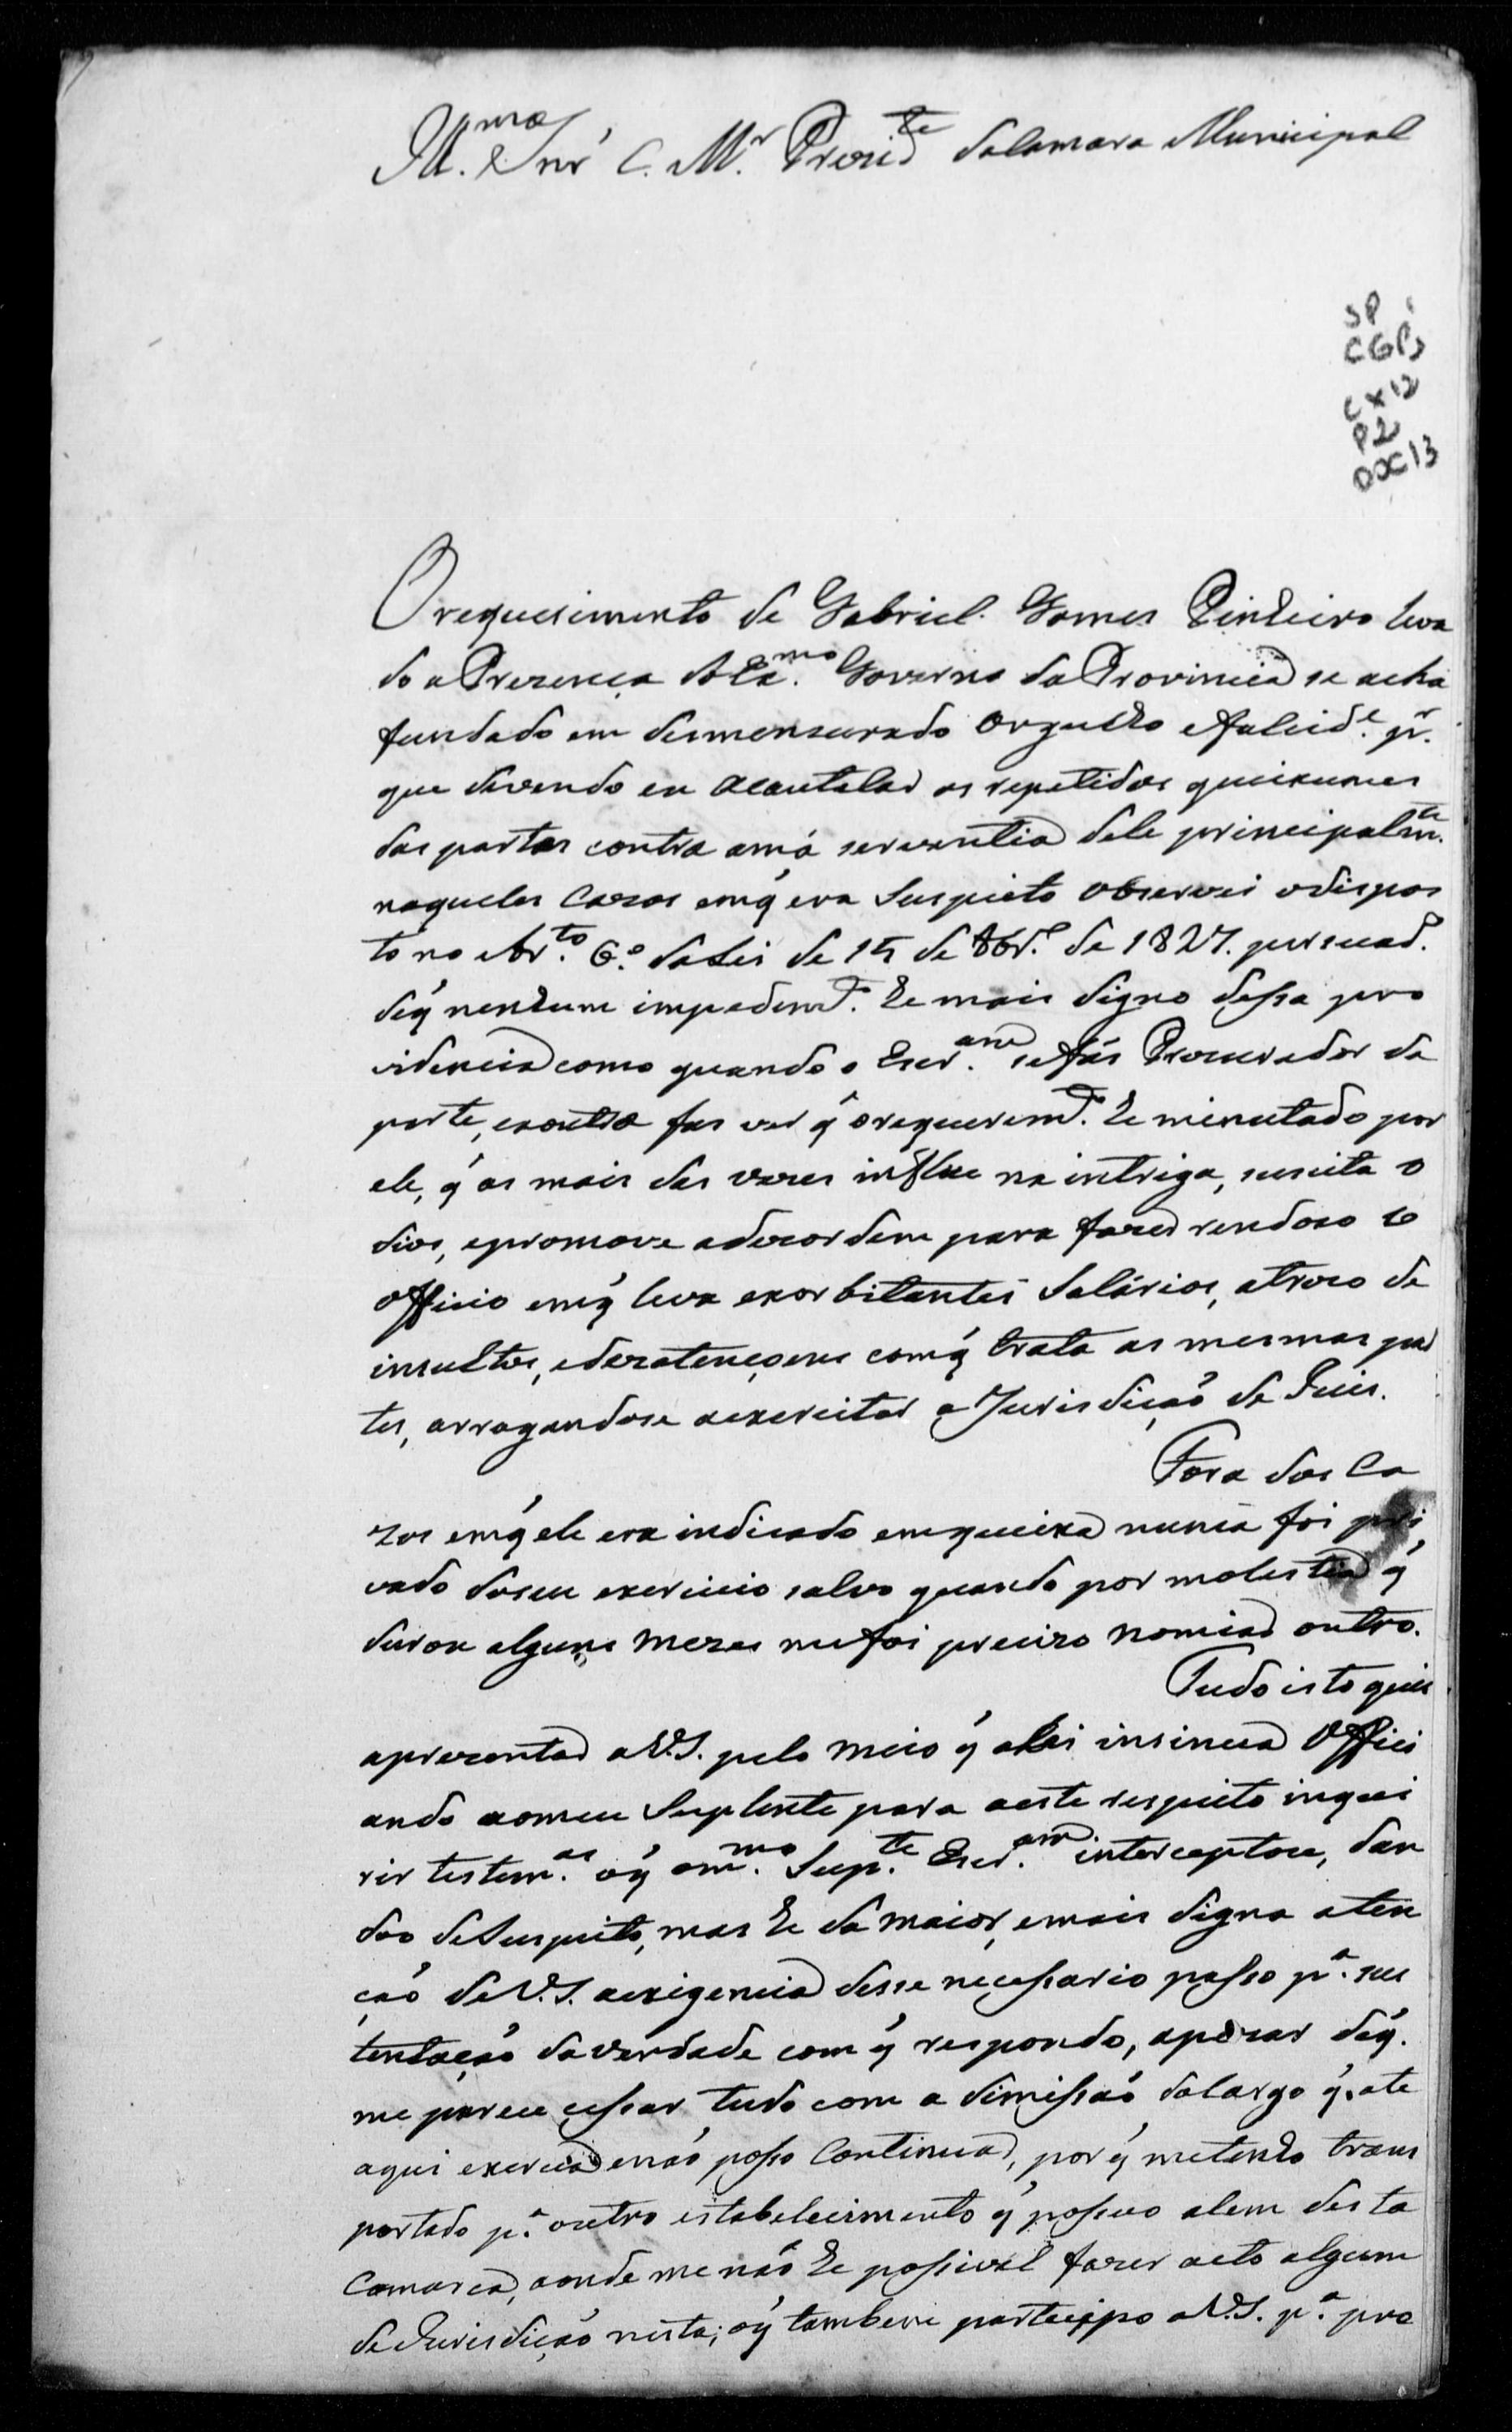 Ill.mo Snr' C. M.r Prezid.te daCamara Municipal
SP
CGP3
CX12
P2
DOC13
O requerimento de Gabriel Gomes Pinheiro leva
do a Prezença do Ex.mo Governo da Provincia se acha
fundado em desmensurado orgulho efalcid.e pr.
que devendo eu acautelar os repetidos queixumes
das partes contra amá serventia dele principalm.te
naqueles Cazos emq̃ era Suspeito observei odispos
to no Ar.to 6.º daLei de 15 de 8br.º de 1827. persuad.º
deq̃ nenhum impedim.to he mais digno dessa pro
videncia como quando o Escr.am sefás Procurador da
parte, eaoutra fas ver q̃ orequerim.to he minutado por
ele, q̃ as mais das vezes influe na intriga, suscita o
dios, epromove adezordem para fazer rendozo so
Officio emq̃ leva exorbitantes Salários, atroco de
insultos, edezatençoens comq̃ trata as mesmas par
tes, arrogandose aexercitar a Jurisdição de Juis.
Fora dos Ca
zos emq̃ ele era indicado emqueixa nunca foi pri
vado doseu exercicio salvo quando por molestia q̃
durou alguns mezes mefoi precizo nomiar outro.
Tudo isto quis
aprezentar aV.S. pelo meio q̃ aLei insinua Offici
ando aomeu Suplente para aeste respeito inqui
rir testem.as oq̃ om.mo Sup.te Escr.am interceptou, dan
doo deSuspeito, mas he da maior, emais digna aten
ção deV.S. aexigencia desse necessario passo p.a sus
tentação daverdade com q̃ respondo, apezar deq̃.
me parece cessar tudo com a dimissão doCargo q̃ ate
aqui exercia enão posso Continuar, por q̃ metenho trans
portado p.a outro estabelecimento q̃ possuo alem desta
Comarca, aonde me não he possivel fazer acto algum
deJurisdição nesta; oq̃ tambem participo aV.S. p.a pro